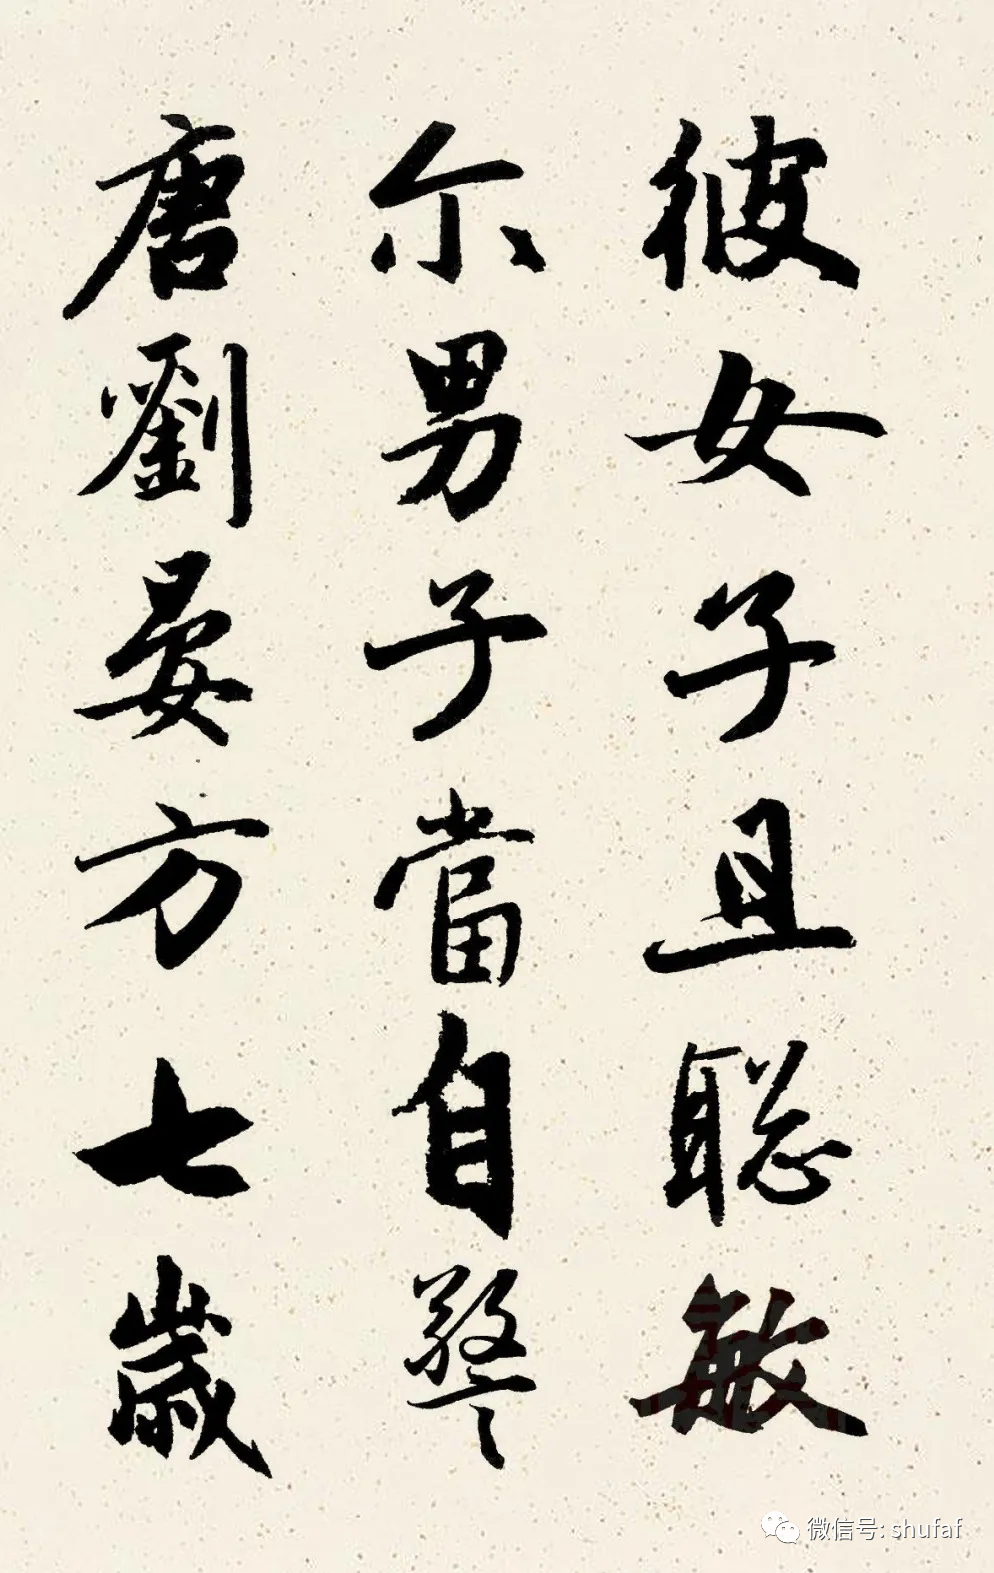 彼女子且聪敏
尓男子當自警
唐劉晏方七歲
微信号: shufaf